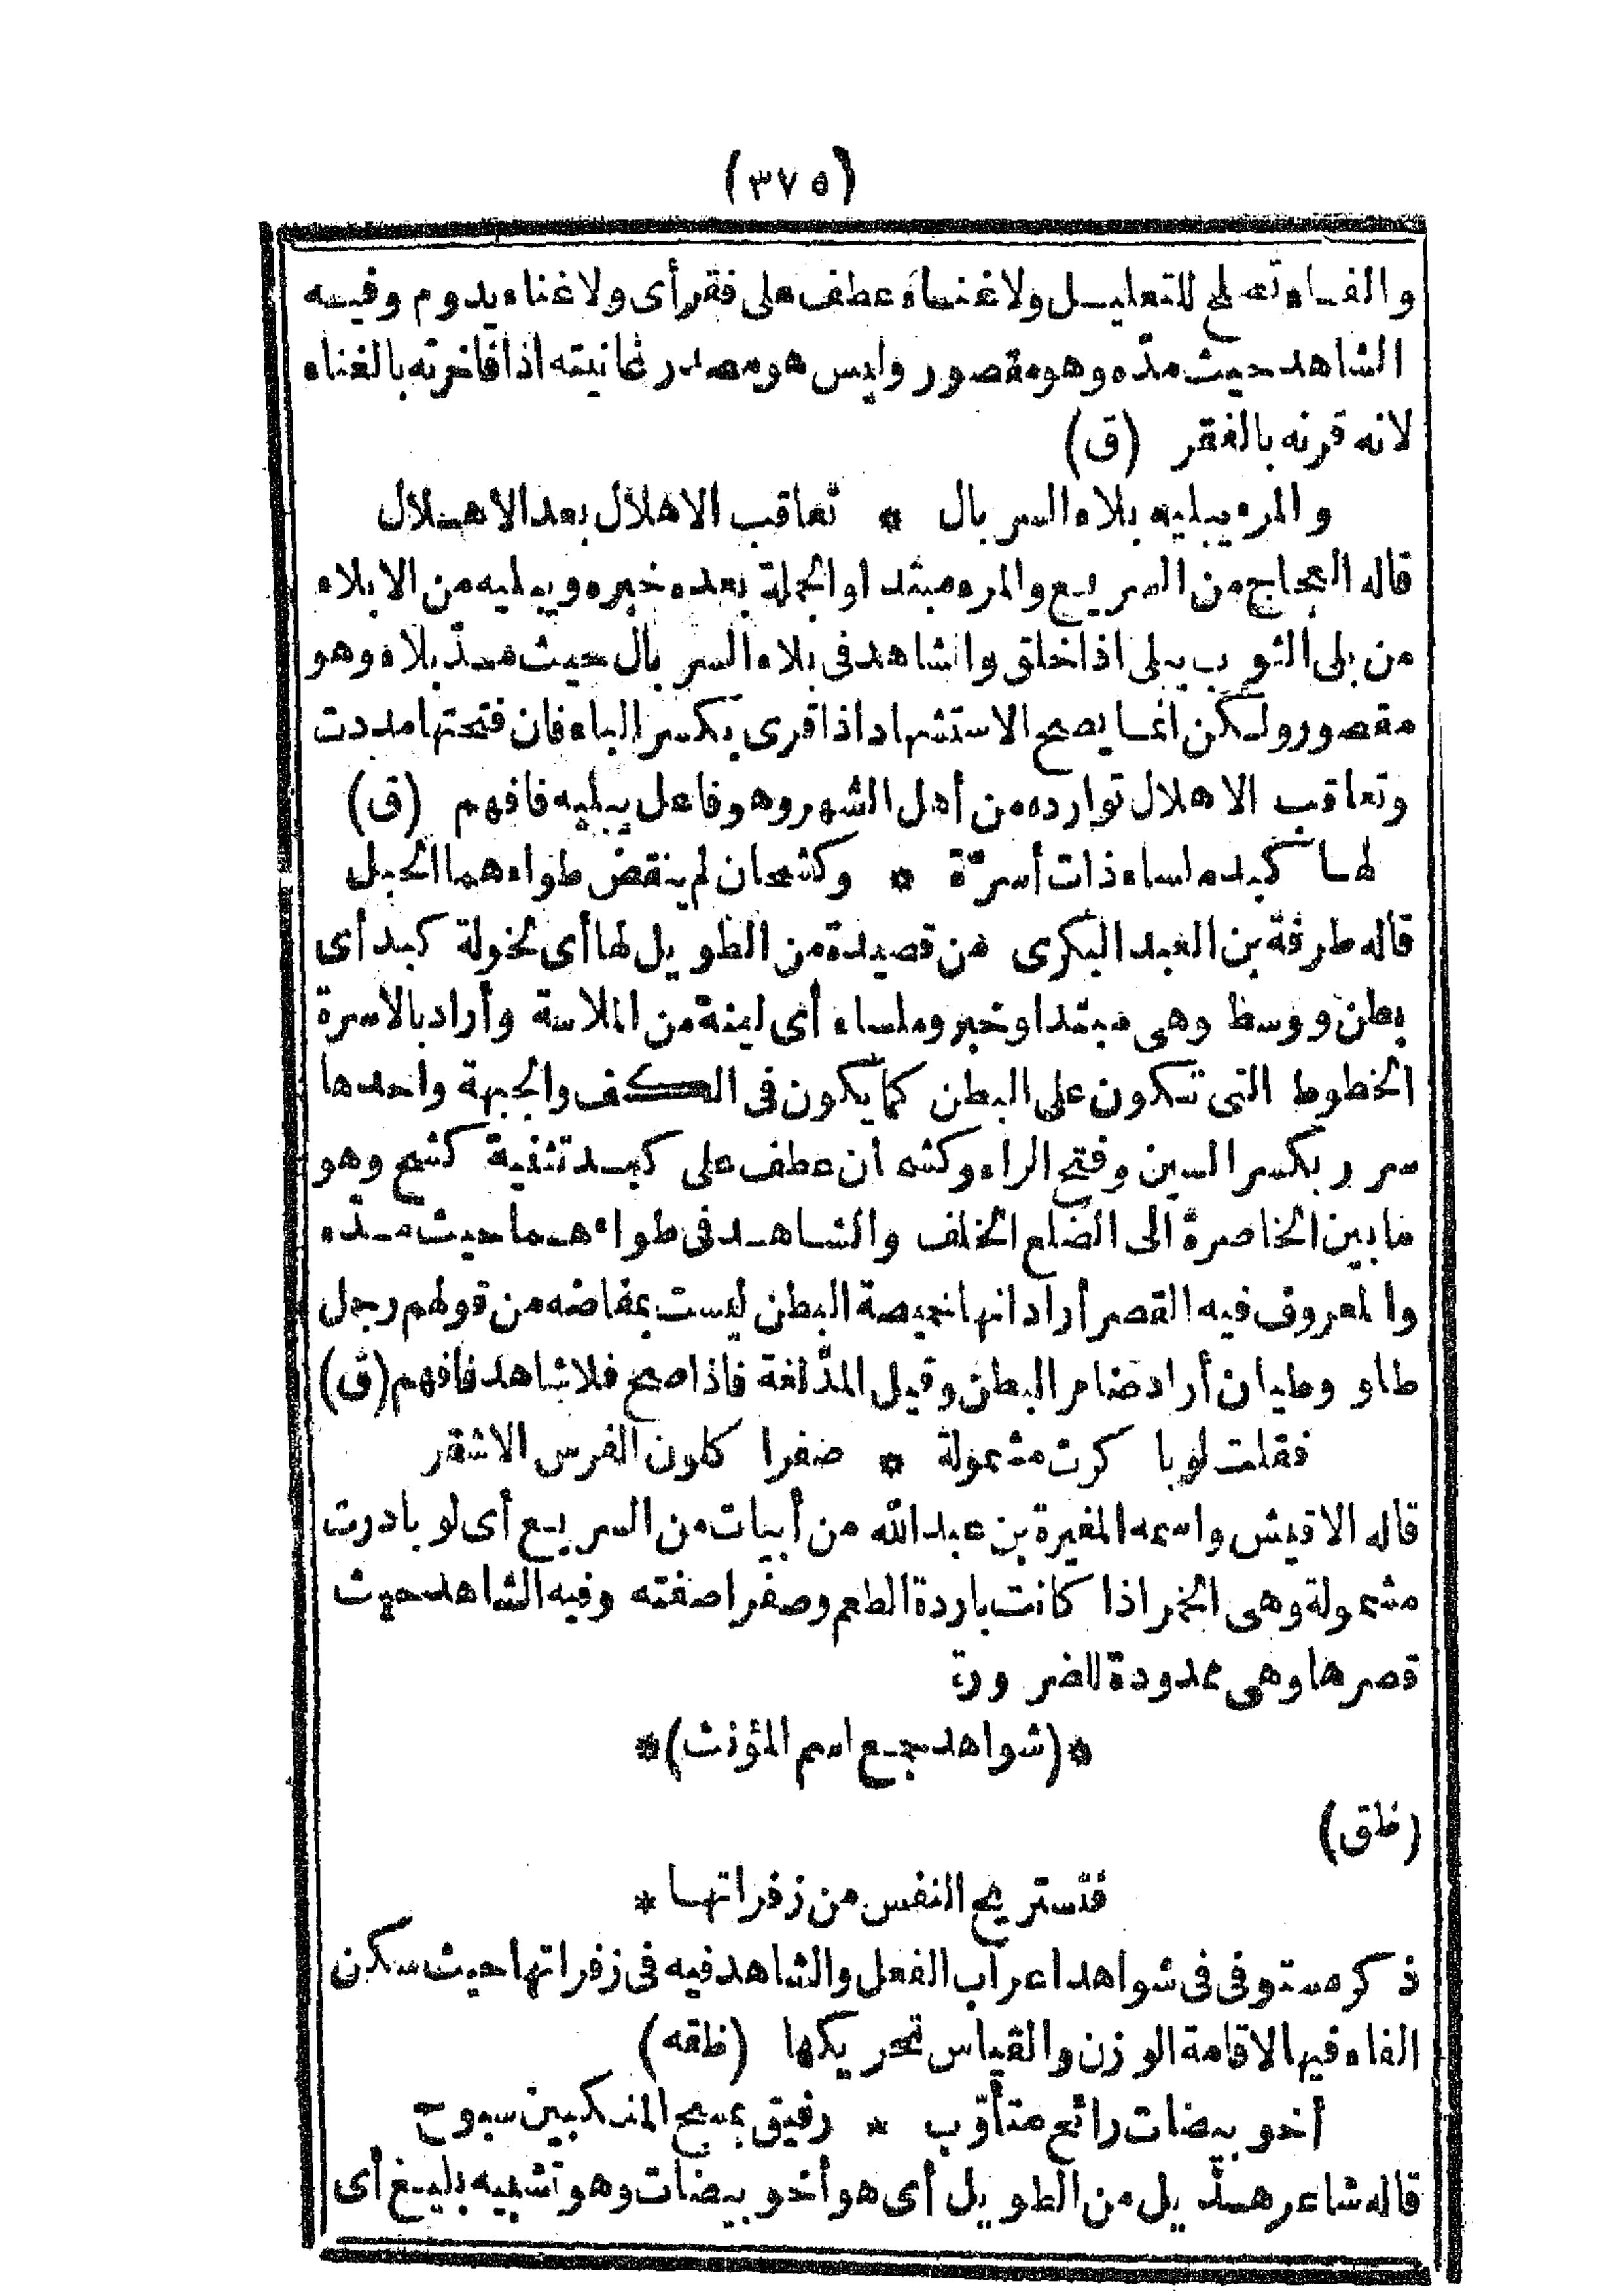 (٣٧٥)
والفاء تصلح للتعليل ولا غناء عطف على فقر أى ولا غناء يدوم وفيه
الشاهد حيث مدّه وهو مقصور وليس هو مصدر غانيته اذا فاخرته بالغناء
لانه قرنه بالفقر (ق)
والمرء يبليه بلاء السربال * تعاقب الاهلال بعد الاهلال
قاله العجاج من السريع والمرء مبتدا والجملة بعده خبره ويبليه من الابلاء
من بلى الثوب يبلى اذا خلق والشاهد فى بلاء السربال حيث مدّ بلاء وهو
مقصور ولكن انما يصح الاستشهاد اذا قرى بكسر الباء فان فتحتها مددت
وتعاقب الاهلال توارده من أهل الشهر وهو فاعل يبليه فافهم (ق)
لها كبد ملساء ذات أسرّة * وكشحان لم ينقض طواءهما الحبل
قاله طرفة بن العبد البكرى من قصيدة من الطويل لها أى لخولة كبد أى
بطن ووسط وهى مبتدا وخبر وملساء أى لينة من الملاسة وأراد بالاسرة
الخطوط التى تكون على البطن كما يكون فى الكف والجبهة واحدها
سرر بكسر السين وفتح الراء وكشحان عطف على كبد تثنية كشح وهو
ما بين الخاصرة الى الضلع الخلف والشاهد فى طواءهما حيث مدّه
والمعروف فيه القصر أراد انها خميصة البطن ليست بمفاضه من قولهم رجل
طاو وطيان أراد ضامر البطن وقيل المدّ لغة فاذا صح فلا شاهد فافهم (ق)
فقلت لو باكرت مشمولة * صفرا كلون الفرس الاشقر
قاله الاقيش واسمه المغيرة بن عبد الله من أبيات من السريع أى لو بادرت
مشمولة وهى الخمر اذا كانت باردة الطعم وصفرا صفته وفيه الشاهد حيث
قصرها وهى ممدودة للضرورة
*(شواهد جمع اسم المؤنث)*
(ظق)
فتستريح النفس من زفراتها *
ذكر مستوفى فى شواهد اعراب الفعل والشاهد فيه فى زفراتها حيث سكن
الفاء فيها لاقامة الوزن والقياس تحريكها (ظقه)
أخو بيضات رائح متأوّب * رفيق بمسح المنكبين سبوح
قاله شاعر هذيل من الطويل أى هو أخو بيضات وهو تشبيه بليغ أى